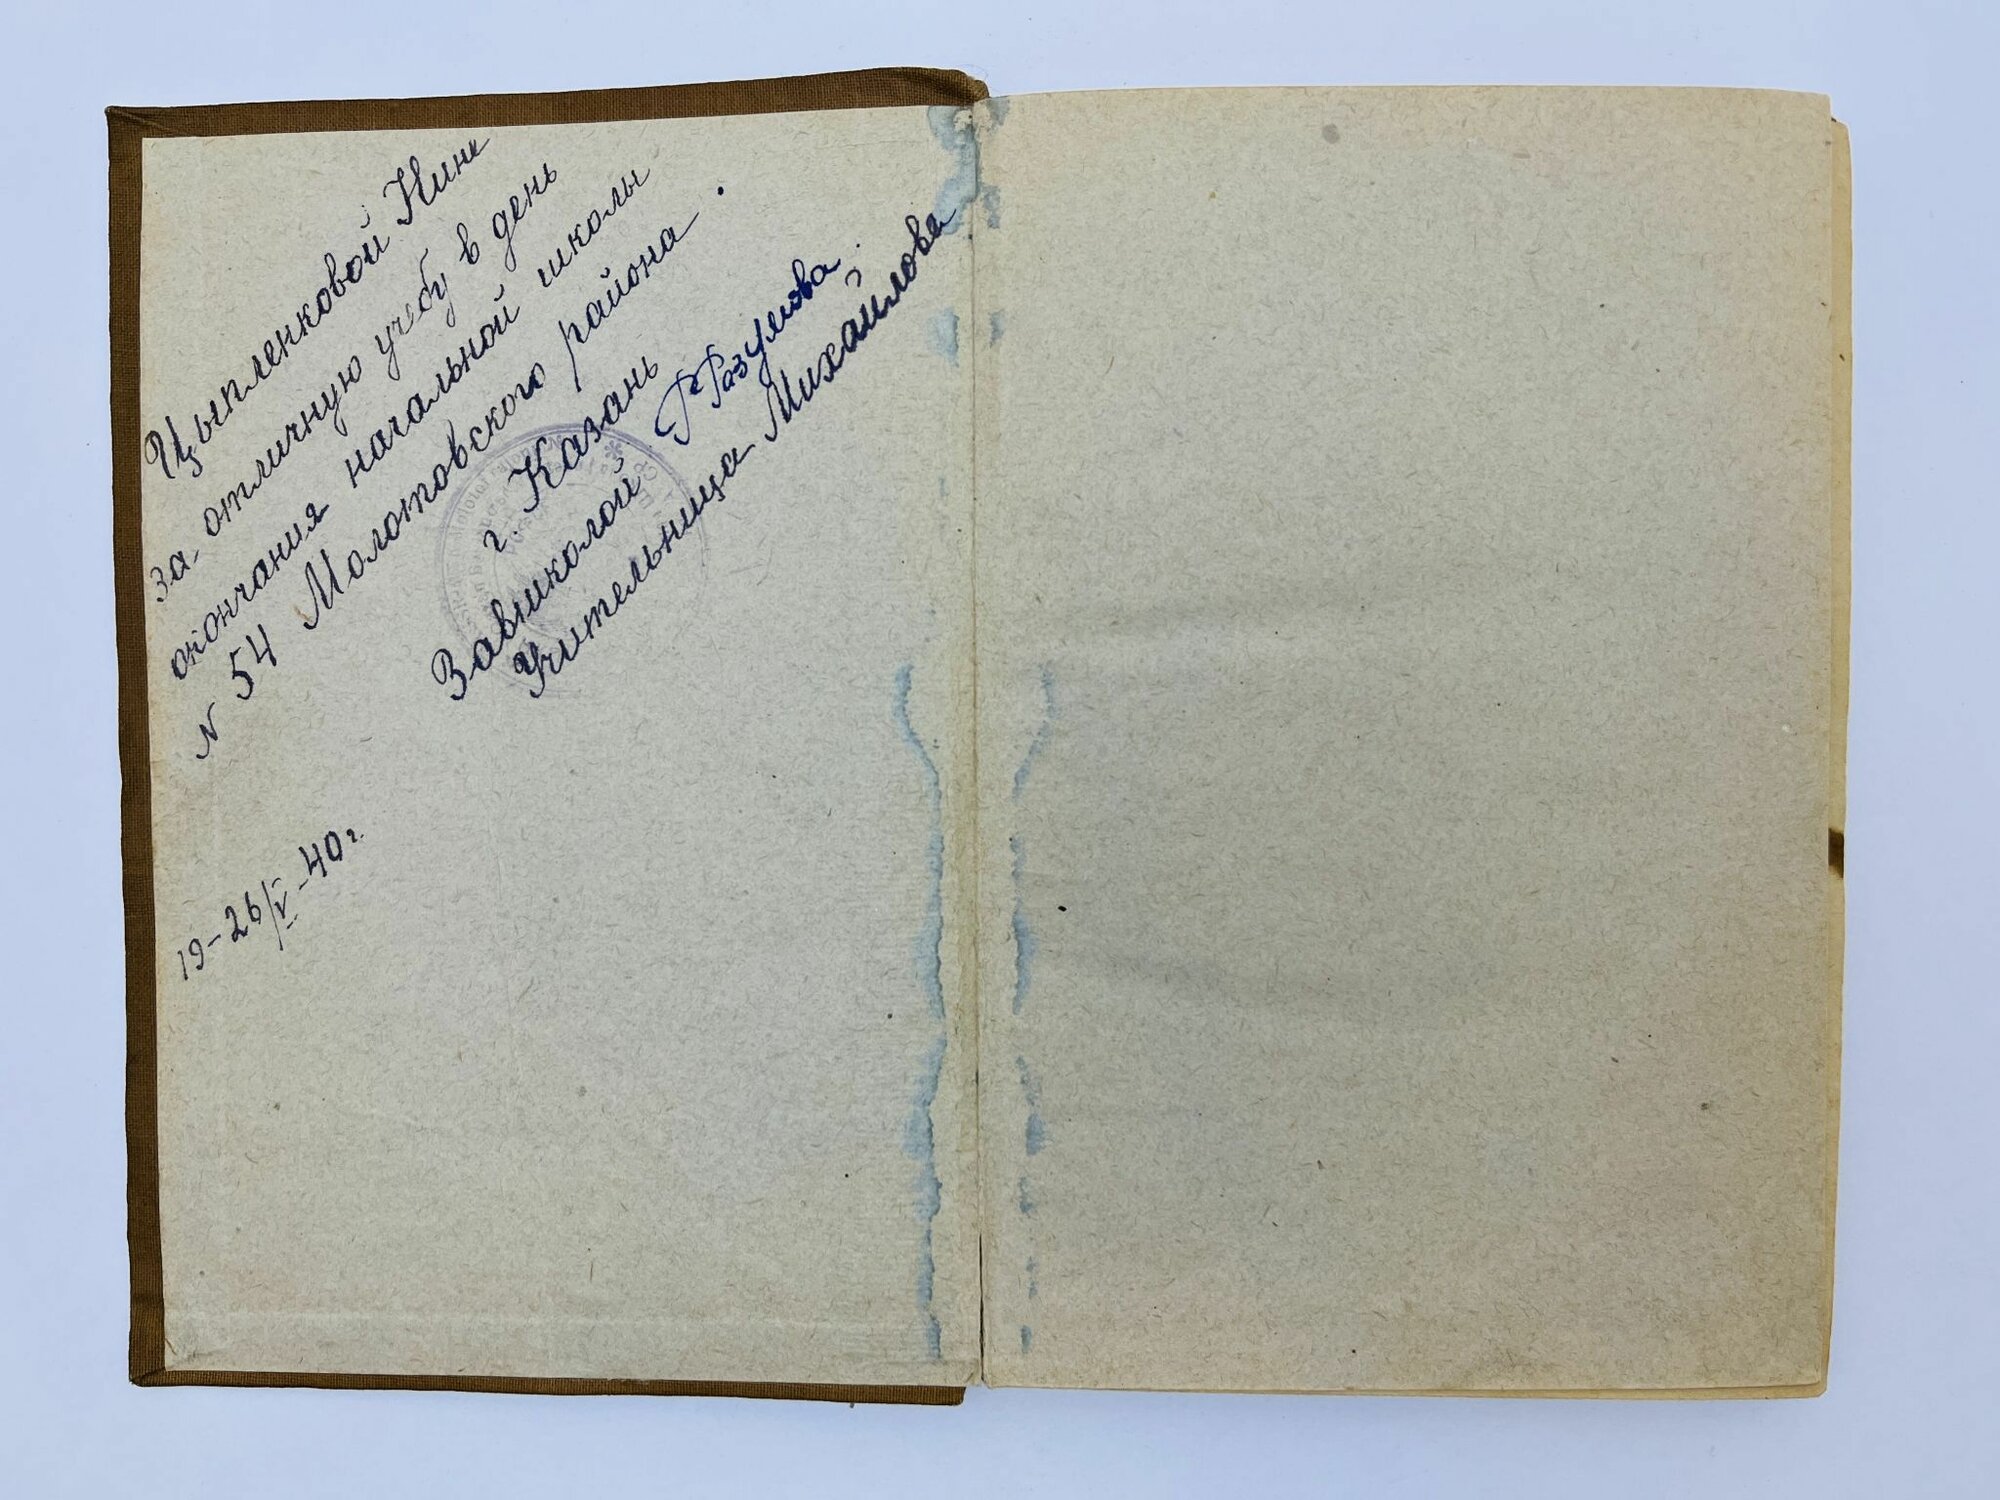 Цыпленковой Нине
за отличную учебу в день
окончания начальной школы
N 54 Молотовского района.
г. Казань
Завшколой Разумова.
Учительница Михайлова
19-26/V-40 г.